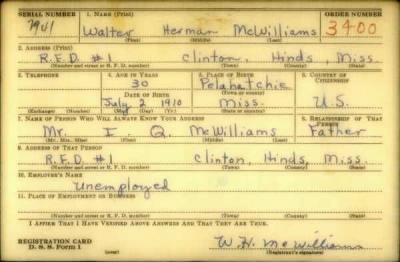 SERIAL NUMBER 1. NAME (Print) ORDER NUMBER
7941 Walter Herman McWilliams 3400
(First) (Middle) (Last)
2. ADDRESS (Print)
R.F.D. #1 Clinton, Hinds, Miss.
(Number and street or R. F. D. number) (Town) (County) (State)
3. TELEPHONE 4. AGE IN YEARS 5. PLACE OF BIRTH 6. COUNTRY OF CITIZENSHIP
30 Pelahatchie
DATE OF BIRTH (Town or county)
July 2 1910 Miss. U.S.
(Exchange) (Number) (Mo.) (Day) (Yr.) (State or country)
7. NAME OF PERSON WHO WILL ALWAYS KNOW YOUR ADDRESS 8. RELATIONSHIP OF THAT PERSON
Mr. I. Q. McWilliams Father
(Mr., Mrs., Miss) (First) (Middle) (Last)
9. ADDRESS OF THAT PERSON
R.F.D. #1 Clinton, Hinds, Miss.
(Number and street or R. F. D. number) (Town) (County) (State)
10. EMPLOYER'S NAME
Unemployed
11. PLACE OF EMPLOYMENT OR BUSINESS
(Number and street or R. F. D. number) (Town) (County) (State)
I AFFIRM THAT I HAVE VERIFIED ABOVE ANSWERS AND THAT THEY ARE TRUE.
REGISTRATION CARD
D. S. S. Form 1 W. H. McWilliams
(Registrant's signature)